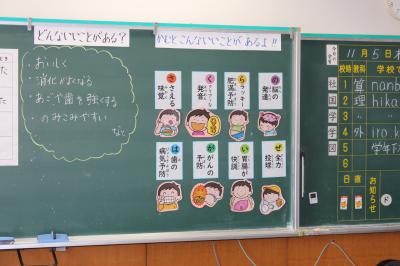 どんないいことがある?
・おいしく
・消化がよくなる
・あごや歯を強くする
・のみこみやすい
など
かむとこんないいことがあるよ!!
の 脳の発達
ら 肥満予防
く 発音
さ さえる味覚
ぜ 全力投球
い 胃腸が快調
が がんの予防
は 歯の病気予防
11月5日木
校時 教科 学校で
社 1 算 nanb
国 2 理 hika
学 3 〃
学 4 外 iro k
図 5 学年
6
日直 お知らせ
ド